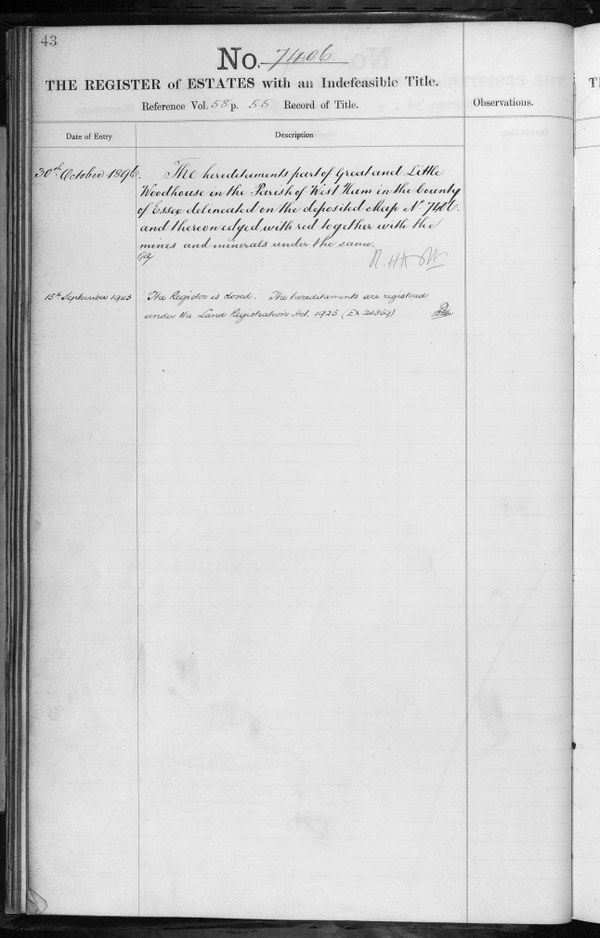 43
No. 7406
THE REGISTER of ESTATES with an Indefeasible Title.
Reference Vol. 58 p. 55 Record of Title.
Observations.
Date of Entry
Description
30th October 1896. The hereditaments part of Great and Little
Woodhouse in the Parish of West Ham in the County
of Essex delineated on the deposited Map No 7406.
and thereon edged with red together with the
mines and minerals under the same.
15th September 1943 The Register is closed. The hereditaments are registered
under the Land Registration Act, 1925 (EX 24364)